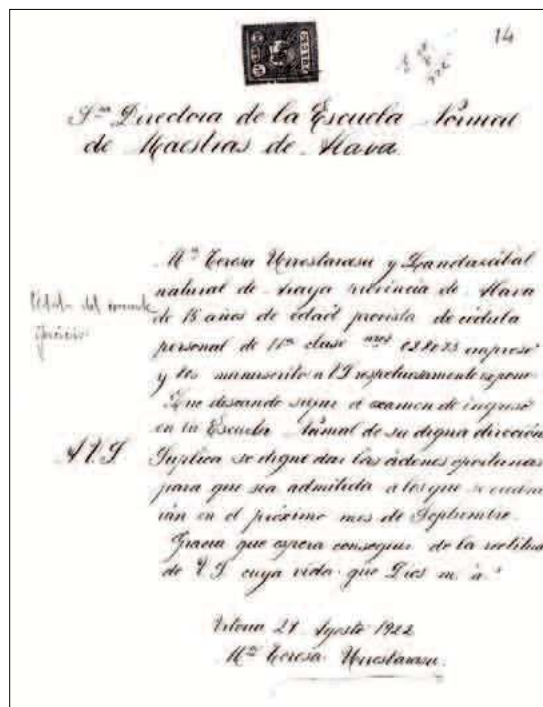 14
Sra Directora de la Escuela Normal
de Maestras de Alava.
Mª Teresa Urrestarasu y Landazábal
natural de Araya provincia de Alava
de 15 años de edad provista de cédula
personal de 11ª clase 028073 impreso
y manuscrito a V.I respetuosamente expone
Que deseando sufrir el examen de ingreso
en la Escuela Normal de su digna dirección
A V. I. Suplica se digne dar las órdenes oportunas
para que sea admitida a los que se
rán en el próximo mes de Septiembre.
Gracia que espera conseguir de la rectitud
de V. I. cuya vida gue Dios m. a.
Vitoria 27 Agosto 1922
Mª Teresa Urrestarasu.